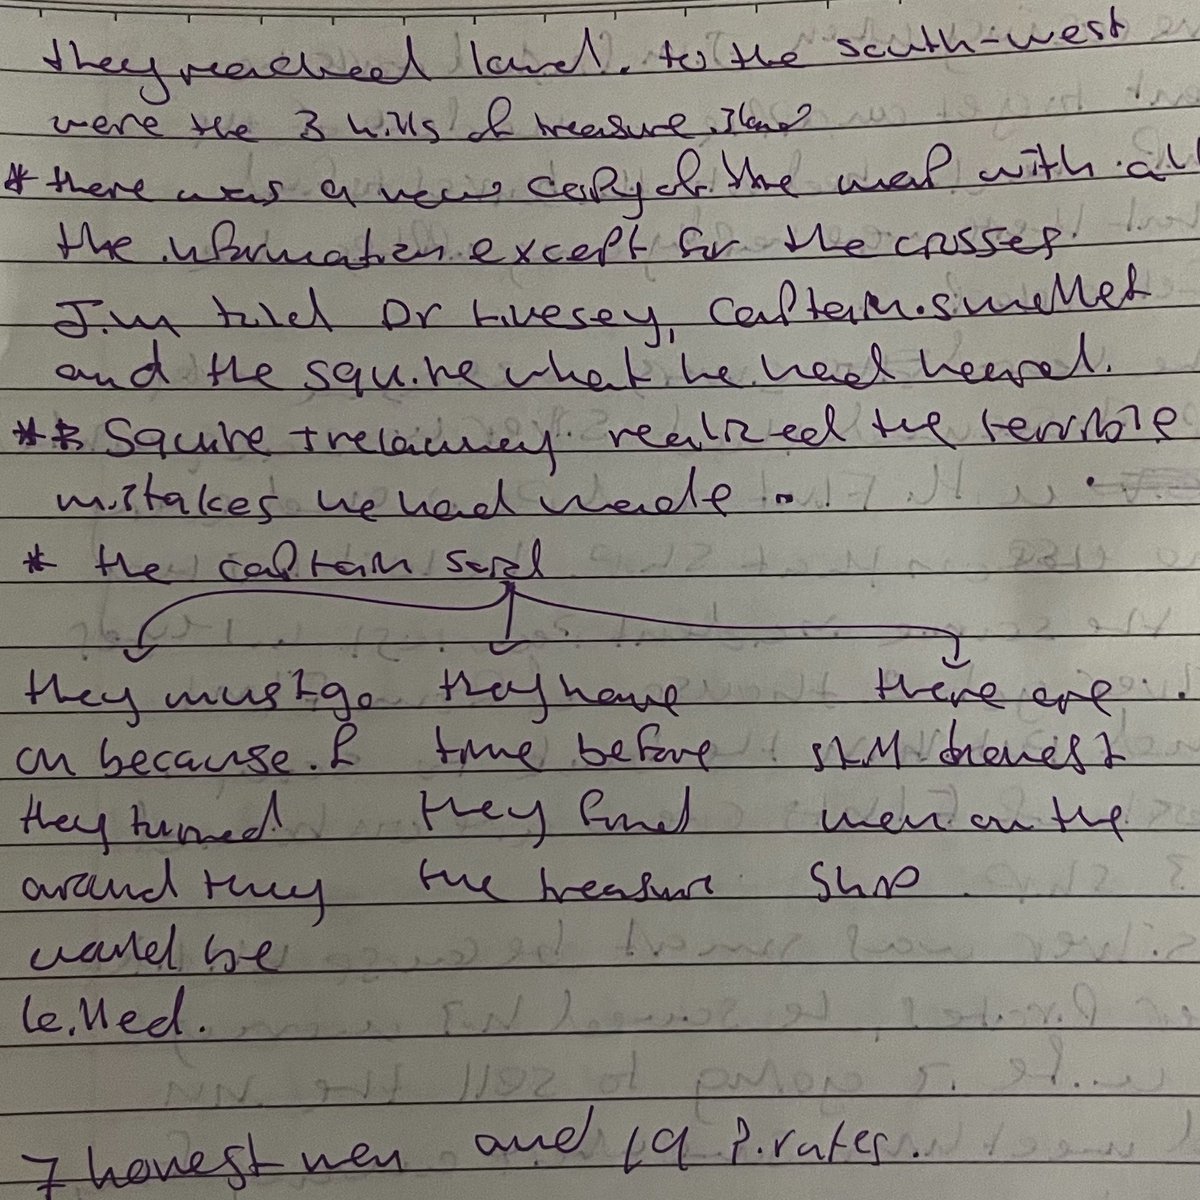 they reached land. to the south-west
were the 3 hills of treasure island
* there was a new copy of the map with all
the information except for the crosses
Jim told Dr Livesey, Captain smollet
and the squire what he had heared.
** Squire trelawney realized the terrible
mistakes he had made
* the captain said
they must go they have there are
on because if time before still honest
they turned they find men on the
around they the treasure ship
would be
killed.
7 honest men and 19 Pirates.